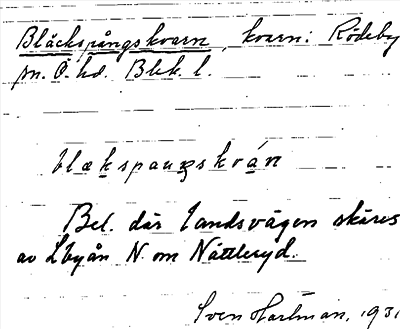 Bläckspångskvarn, kvarn: Rödeby
sn. Ö. hd. Blek. l.
blækspaŋskván
Bel. där landsvägen skäres
av Lbyån N. om Nättleryd.
Sven Hartman, 1931